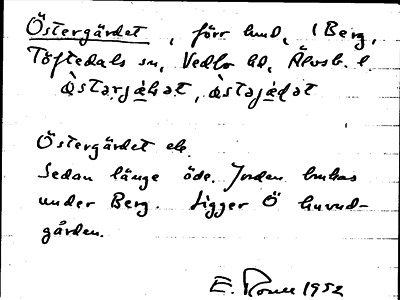 Östergärdet, förr hmd, i Berg,
Töftedals sn, Vedbo hd, Älvsb. l.
Östergärdet ek.
Sedan länge öde. Jorden brukas
under Berg. Ligger Ö huvud-
gården.
E. 1952